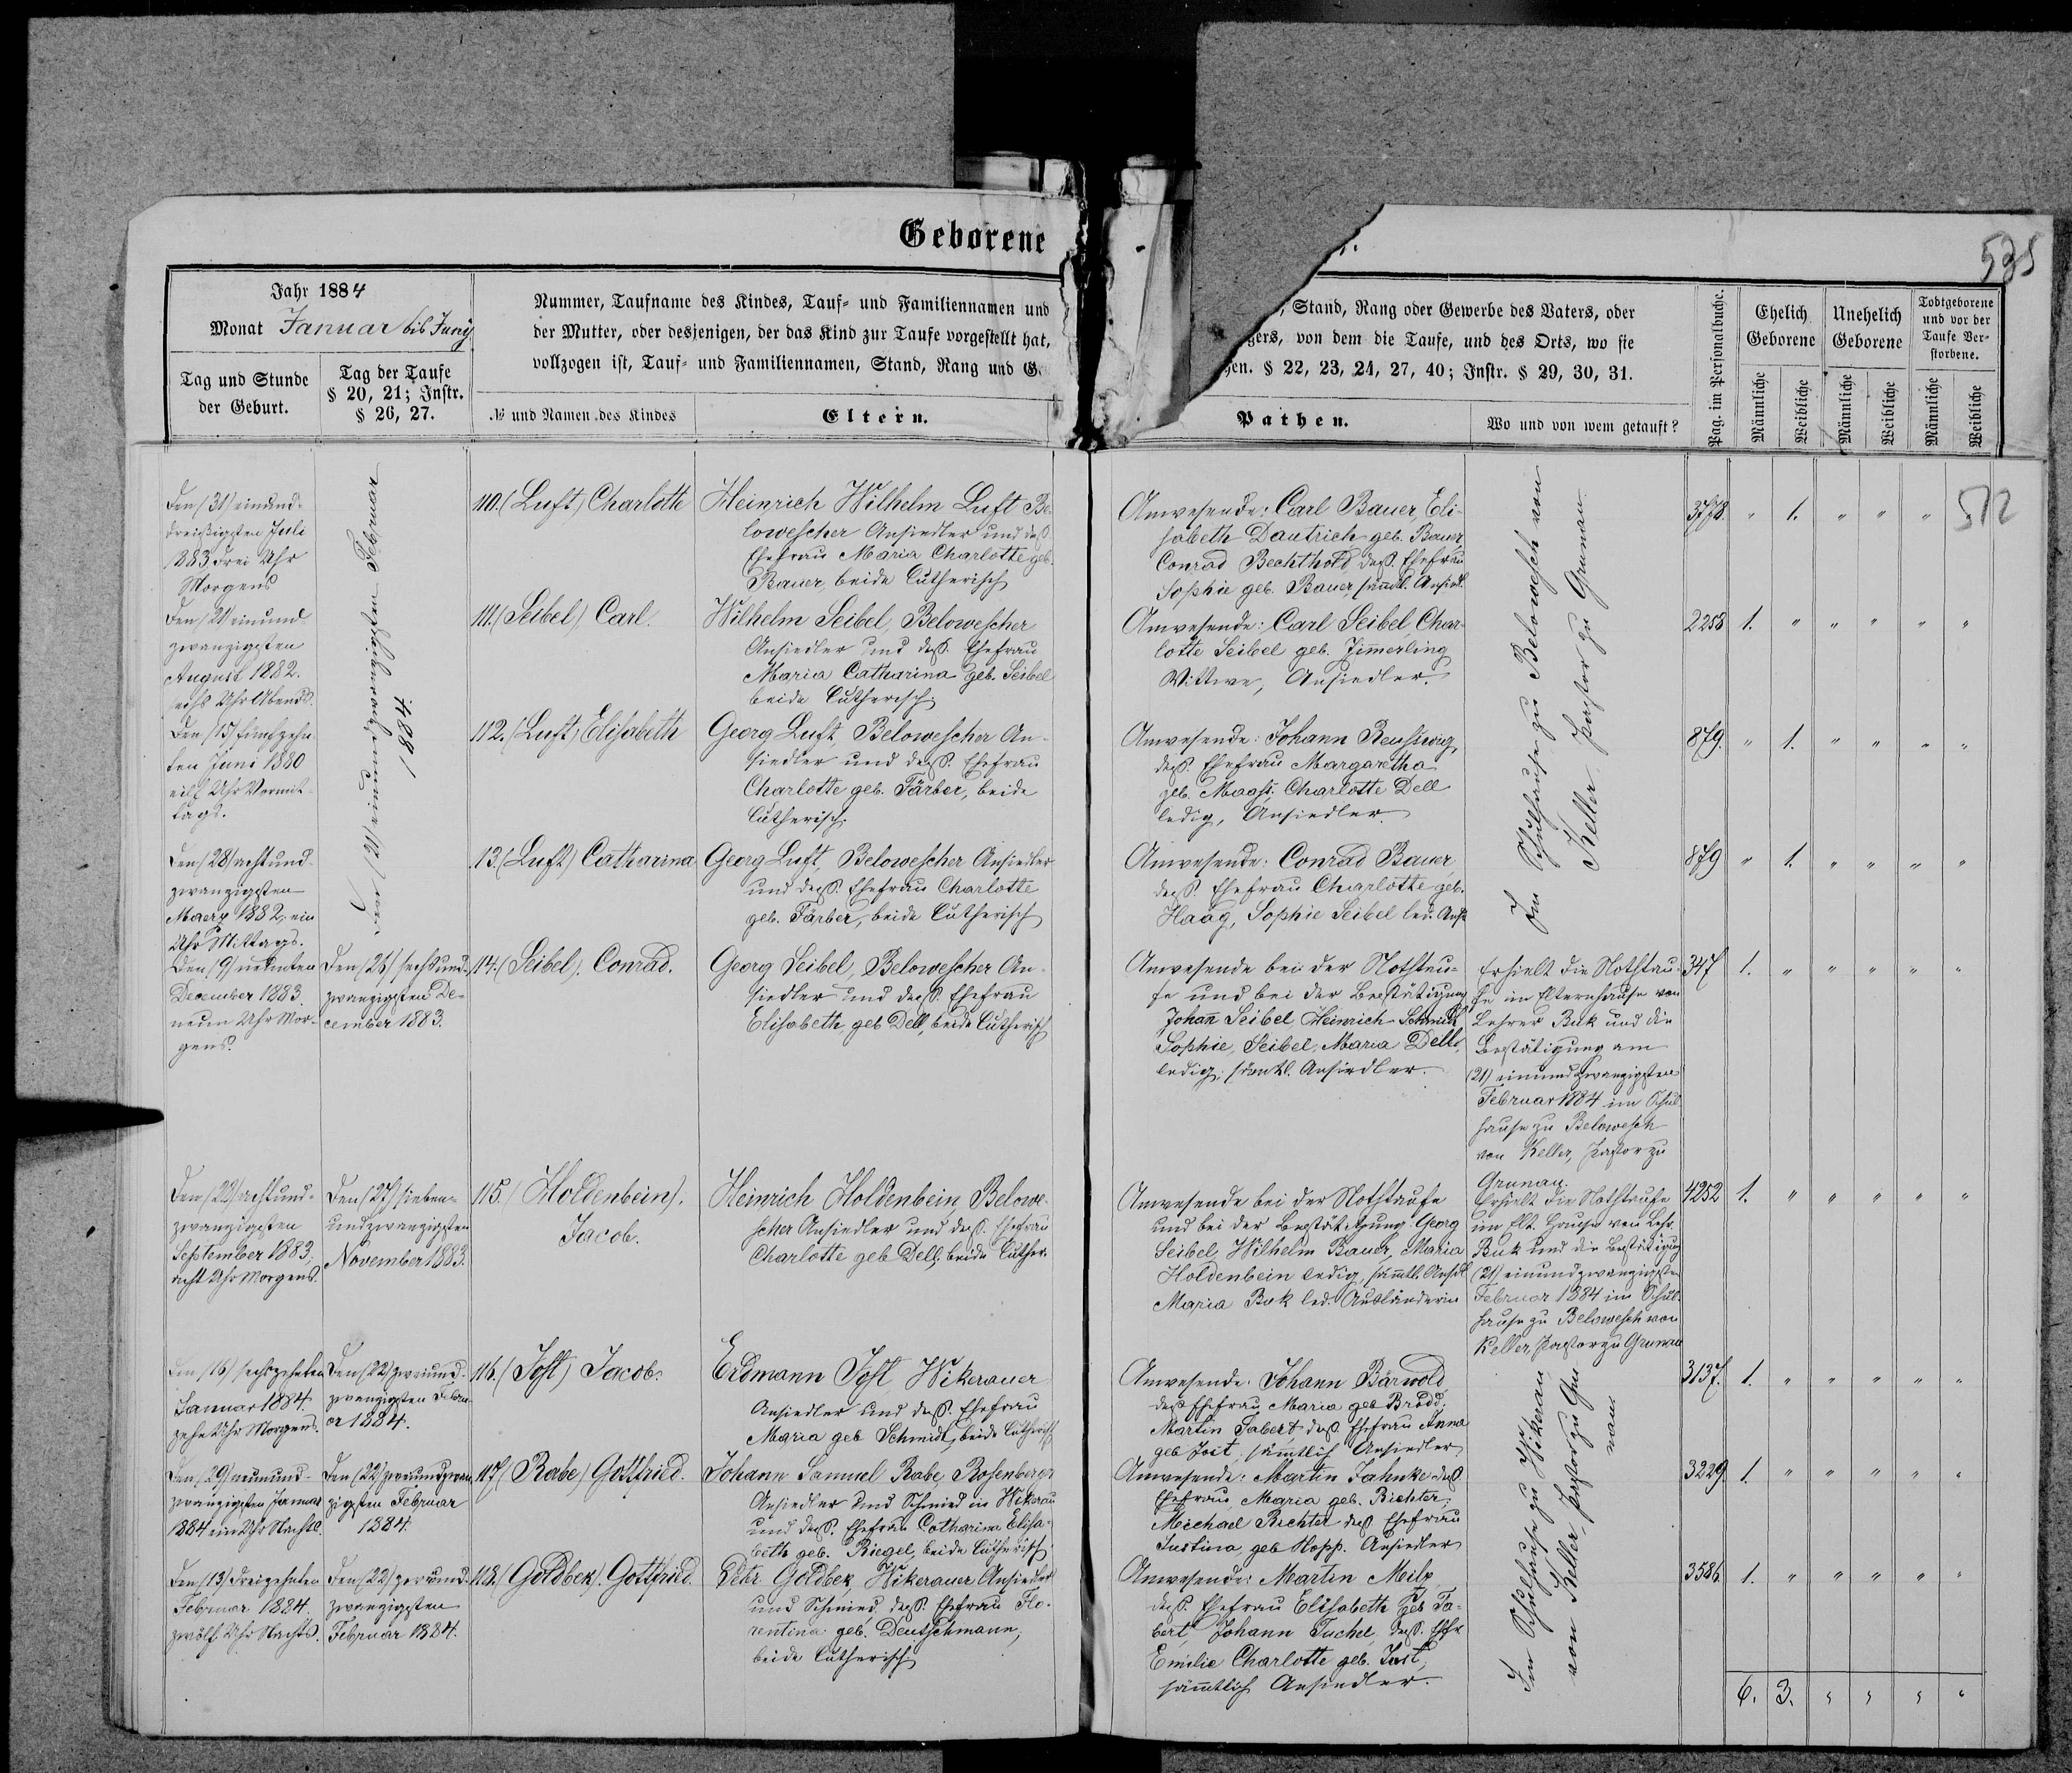 Geborene
535
Jahr 1884
Monat Januar bis Juny
Tag und Stunde
der Geburt.
Tag der Taufe
§ 20, 21; Instr.
§ 26, 27.
Nummer, Taufname des Kindes, Tauf- und Familiennamen und
der Mutter, oder desjenigen, der das Kind zur Taufe vorgestellt hat,
vollzogen ist, Tauf- und Familiennamen, Stand, Rang und
№ und Namen des Kindes
Eltern.
Stand, Rang oder Gewerbe des Vaters, oder
von dem die Taufe, und des Orts, wo sie
§ 22, 23, 24, 27, 40; Instr. § 29, 30, 31.
Pathen.
Wo und von wem getauft?
Pag. im Personalbuche.
Ehelich
Geborene
Unehelich
Geborene
Todtgeborene
und vor der
Taufe Ver-
storbene.
Männliche
Weibliche
Männliche
Weibliche
Männliche
Weibliche
512
Den (31) einund-
dreißigsten Juli
1883 drei Uhr
Morgens
Den (21) einundzwanzigsten Februar
1884.
110. (Luft) Charlotte
Heinrich Wilhelm Luft Be-
lowescher Ansiedler und deß.
Ehefrau Maria Charlotte geb.
Bauer, beide Lutherisch
Anwesende: Carl Bauer, Eli-
sabeth Dautrich geb. Bauer,
Conrad Bechthold deß. Ehefrau
Sophie geb. Bauer sämtl. Ansiedl.
Im Schulhause zu Belowesch von
Keller, Pastor zu Grunau.
3778. " 1. " " "
Den (21) einund
zwanzigsten
August 1882.
sechs Uhr Abends.
111. (Seibel) Carl.
Wilhelm Seibel, Belowescher
Ansiedler und deß. Ehefrau
Maria Catharina geb. Seibel
beide Lutherisch
Anwesende: Carl Seibel, Char-
lotte Seibel geb. Zimerling
Wittwe, Ansiedler.
2258 1. " " " " "
Den (15) fünfzehn
ten Juni 1880
eilf Uhr Vormit-
tags.
112. (Luft) Elisabeth
Georg Luft, Belowescher An-
siedler und deß. Ehefrau
Charlotte geb. Färber, beide
Lutherisch.
Anwesende: Johann
deß. Ehefrau Margaretha
geb. Maaß, Charlotte Dell
ledig, Ansiedler.
879. " 1. " " " "
Den (28) achtund-
zwanzigsten
Maerz 1882, ein
Uhr Mittags.
13. (Luft) Catharina
Georg Luft, Belowescher Ansiedler
und deß. Ehefrau Charlotte
geb. Färber, beide Lutherisch
Anwesende: Conrad Bauer,
deß. Ehefrau Charlotte geb.
Haag, Sophie Seibel led. Ans.
879 " 1. " " " "
Den (9) neunten
December 1883.
neun Uhr Mor-
gens.
Den (26) sechsund-
zwanzigsten De-
cember 1883.
114. (Seibel). Conrad.
Georg Seibel, Belowescher An-
siedler und deß. Ehefrau
Elisabeth, geb Dell, beide Lutherisch
Anwesende bei der Nothtau-
fe und bei der Bestätigung
Johan Seibel, Heinrich Schmidt
Sophie Seibel, Maria Dell,
ledig, sämtl. Ansiedler.
Erhielt die Nothtau-
fe im Elternhause von
Lehrer Buk und die
Bestätigung am
(21) einundzwanzigsten
Februar 1884 im Schul
hause zu Belowesch
von Keller, Pastor zu
Grunau.
347 1. " " " " "
Den (22) achtund-
zwanzigsten
September 1883.
acht Uhr Morgens.
Den (27) sieben-
undzwanzigsten
November 1883.
115. (Holdenbein).
Jacob.
Heinrich Holdenbein, Belowe-
scher Ansiedler und deß. Ehefrau
Charlotte geb. Dell, beide Luther.
Anwesende bei der Nothtaufe
und bei der Bestätigung: Georg
Seibel, Wilhelm Bauer, Maria
Holdenbein ledig, sämtl. Ansiedl.
Maria Buk led. Ausländerin
Erhielt die Nothtaufe
im Elt. Hause von Lehr.
Buk und die Bestätigung
(21) einundzwanzigsten
Februar 1884 im Schul
hause zu Belowesch von
Keller, Pastor zu Grunau
4252 1. " " " " "
Den (16) sechszehnten
Januar 1884.
zehn Uhr Morgens.
Den (22) zweiund-
zwanzigsten Febru-
ar 1884.
116. (Jost) Jacob.
Erdmann Jost Wikerauer
Ansiedler und deß. Ehefrau
Maria geb Schmidt, beide Lutherisch
Anwesende: Johann Bärwold
deß Ehefrau Maria geb Brodd,
Martin Tabert, deß. Ehefrau Anna
geb Jost, sämtlich Ansiedler
Im Schulhause zu Wikerau
von Keller, Pastor zu Gru
nau
3137. 1. " " " " "
Den (29) neunund-
zwanzigsten Januar
1884 ein Uhr Nachts.
Den (22) zweiundzwan
zigsten Februar
1884.
117. (Rabe) Gottfried.
Johann Samuel Rabe Rosenberger
Ansiedler und Schmied in Wikerau
und deß. Ehefrau Catharina Elisa-
beth geb. Riegel, beide Lutherisch
Anwesende: Martin Jahnke deß
Ehefrau Maria geb. Richter,
Michael Richter deß Ehefrau
Justina, geb Hopp. Ansiedler
3229. 1. " " " " "
Den (13) dreizehnten
Februar 1884.
zwölf Uhr Nachts.
Den (22) zweiund-
zwanzigsten
Februar 1884.
118. (Goldbek). Gottfried.
Petr Goldbek, Wikerauer Ansiedler
und Schmied, deß. Ehefrau Flo-
rentina geb. Deutschmann,
beide Lutherisch
Anwesende: Martin
deß. Ehefrau Elisabeth geb Ta-
bert, Johann Tuchel, deß. Ehfr
Emilie Charlotte geb. Jost,
sämtlich Ansiedler.
3586. 1. " " " " "
6. 3. " " " "